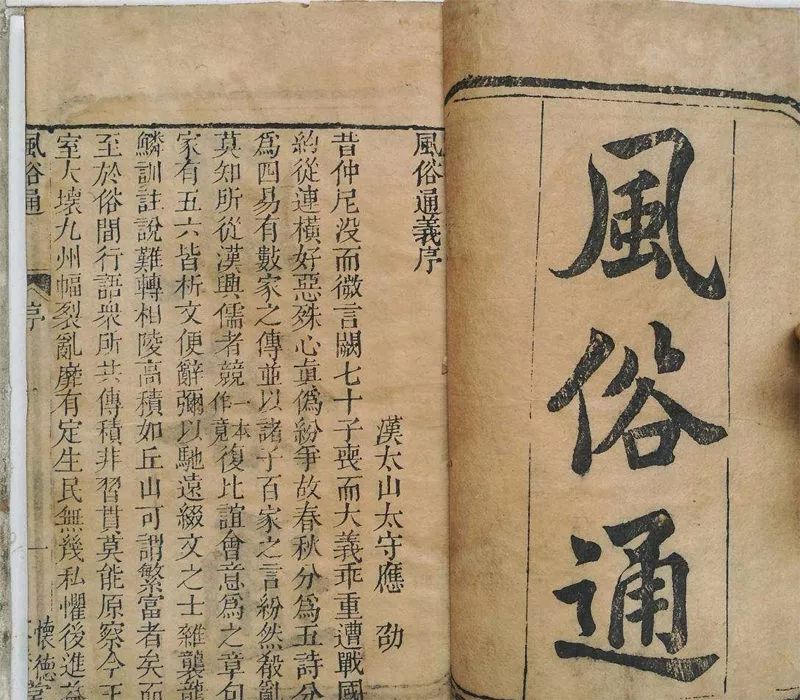 風俗通
風俗通義序
漢太山太守應劭
昔仲尼没而微言闕七十子喪而大義乖重遭戰國
約從連橫好惡殊心真僞紛爭故春秋分爲五詩分
爲四易有數家之傳並以諸子百家之言紛然殽亂
莫知所從漢興儒者競一本作竟復比誼會意爲之章句
家有五六皆析文便辭彌以馳遠綴文之士雜襲龍
鱗訓註說難轉相陵高積如丘山可謂繁富者矣而
至於俗間行語衆所共傳積非習貫莫能原察今王
室大壞九州幅裂亂靡有定生民無幾私懼後進益
風俗通
序
一
懷德堂